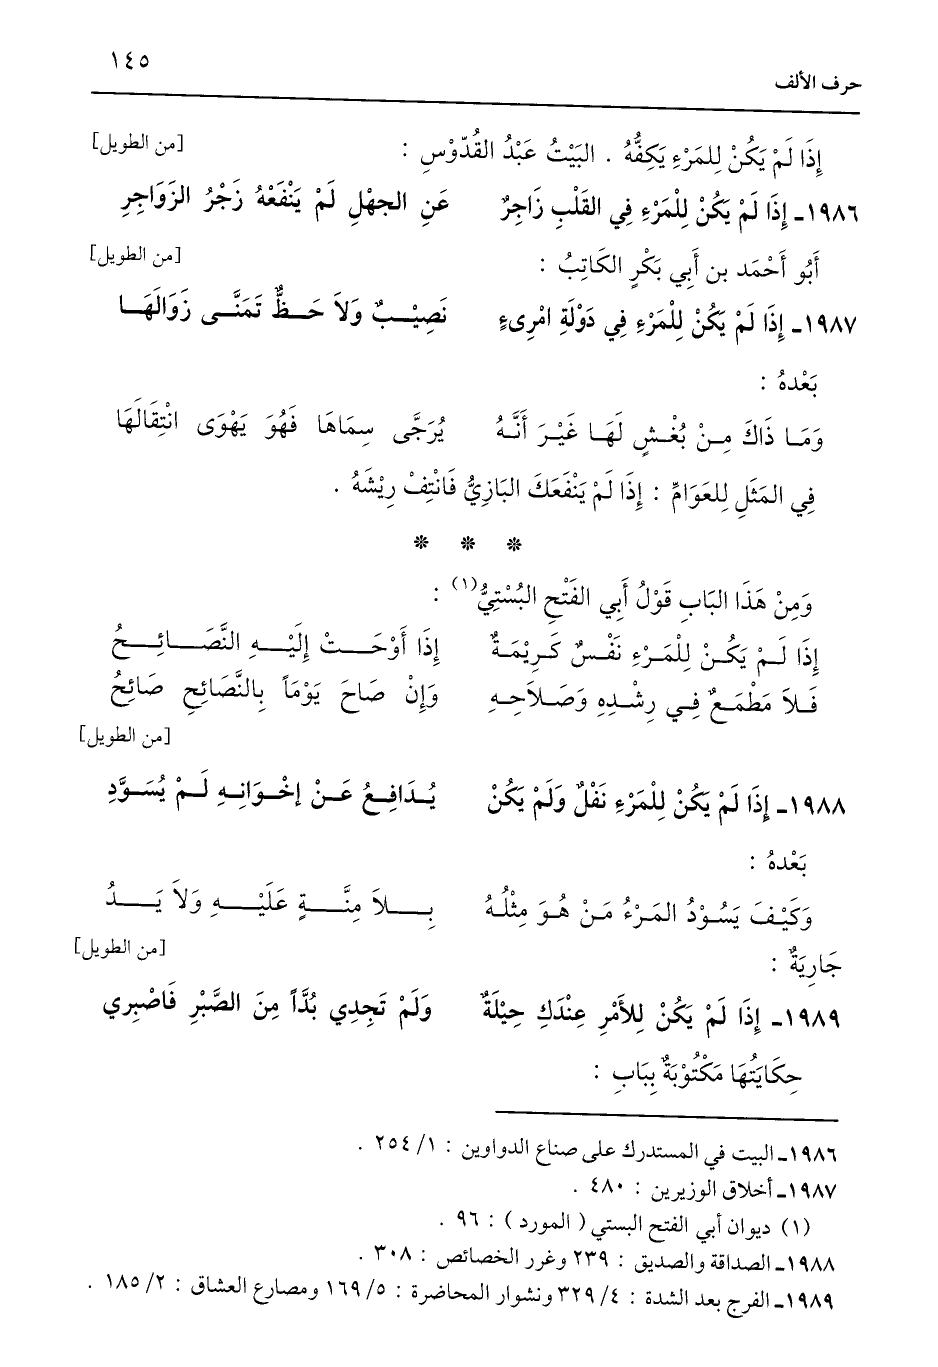 ١٤٥
حرف الألف
إِذَا لَمْ يَكُنْ لِلمَرْءِ يَكِفُّهُ . البَيْتُ عَبْدُ القُدّوْسِ : [من الطويل]
١٩٨٦ـ إِذَا لَمْ يَكُنْ لِلْمَرْءِ فِي القَلْبِ زَاجِرٌ عَنِ الجهْلِ لَمْ يَنْفَعْهُ زَجْرُ الزَوَاجِرِ
أَبُو أَحْمَد بن أَبِي بَكْرٍ الكَاتِبُ : [من الطويل]
١٩٨٧ـ إِذَا لَمْ يَكُنْ لِلْمَرْءِ فِي دَوْلَةِ امْرِىءٍ نَصِيْبٌ وَلاَ حَظٌّ تَمَنَّى زَوَالَهَا
بَعْدهُ :
وَمَا ذَاكَ مِنْ بُغْشٍ لَهَا غَيْرَ أَنَّهُ يُرَجَّى سِمَاهَا فَهُوَ يَهْوَى انْتِقَالَهَا
فِي المَثَلِ لِلعَوَامِّ : إِذَا لَمْ يَنْفَعَكَ البَازِيُّ فَانْتِفْ رِيْشَهُ .
* * *
وَمِنْ هَذَا البَابِ قَوْلُ أَبِي الفَتْحِ البُسْتِيُّ(١) :
إِذَا لَمْ يَكُنْ لِلْمَرْءِ نَفْسٌ كَرِيْمَةٌ إِذَا أَوْحَتْ إِلَيْهِ النَّصَائِحُ
فَلاَ مَطْمَعٌ فِي رِشْدِهِ وَصَلاَحِهِ وَإِنْ صَاحَ يَوْمَاً بِالنَّصَائِحِ صَائِحُ
[من الطويل]
١٩٨٨ـ إِذَا لَمْ يَكُنْ لِلْمَرْءِ نَفْلٌ وَلَمْ يَكُنْ يُدَافِعُ عَنْ إخْوَانِهِ لَمْ يُسَوَّدِ
بَعْدهُ :
وَكَيْفَ يَسُوْدُ المَرْءُ مَنْ هُوَ مِثْلُهُ بِلاَ مِنَّةٍ عَلَيْهِ وَلاَ يَدُ
[من الطويل]
جَارِيَةٌ :
١٩٨٩ـ إِذَا لَمْ يَكُنْ لِلأَمْرِ عِنْدَكِ حِيْلَةٌ وَلَمْ تَجِدِي بُدَّاً مِنَ الصَّبْرِ فَاصْبِرِي
حِكَايَتُهَا مَكْتُوْبَةٌ بِبَابِ :
١٩٨٦ـ البيت في المستدرك على صناع الدواوين : ١/ ٢٥٤ .
١٩٨٧ـ أخلاق الوزيرين : ٤٨٠ .
(١) ديوان أبي الفتح البستي ( المورد ) : ٩٦ .
١٩٨٨ـ الصداقة والصديق : ٢٣٩ وغرر الخصائص : ٣٠٨ .
١٩٨٩ـ الفرج بعد الشدة : ٤/ ٣٢٩ ونشوار المحاضرة : ٥/ ١٦٩ ومصارع العشاق : ٢/ ١٨٥ .